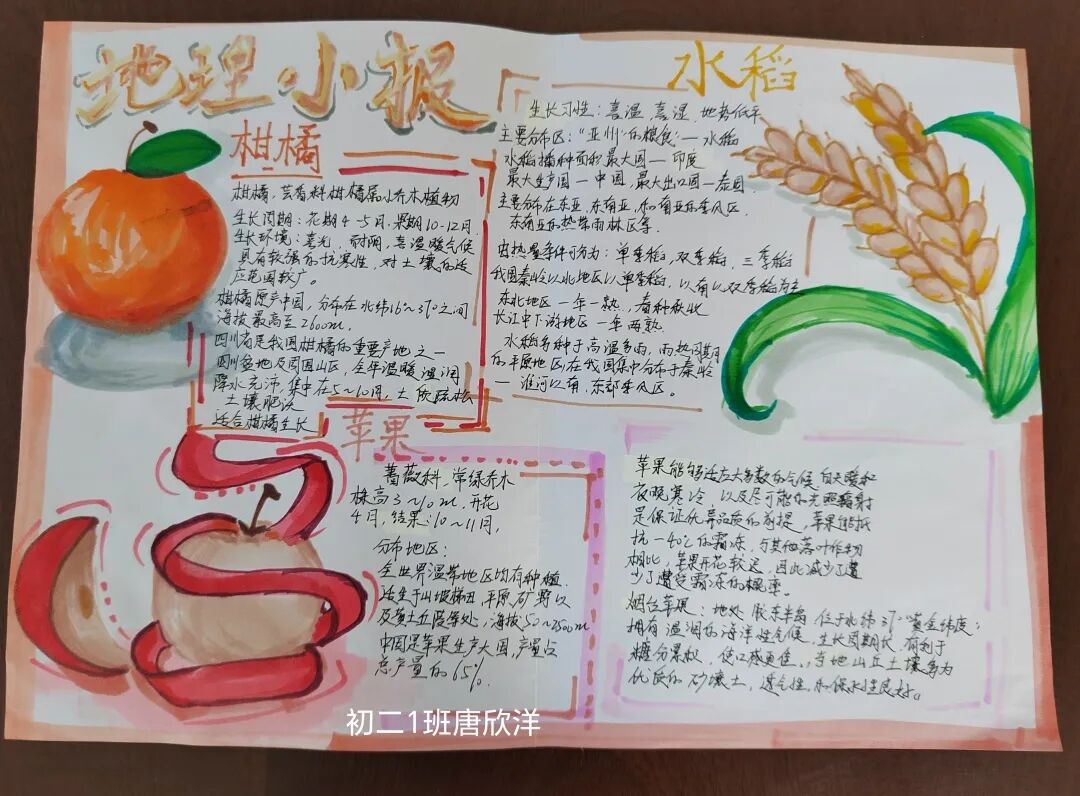 地理小报
柑橘
柑橘，芸香科柑橘属小乔木植物
生长周期：花期4-5月.果期10-12月.
生长环境：喜光，耐阴，喜温暖气候
具有较强的抗寒性，对土壤的适
应范围较广。
柑橘原产中国，分布在北纬16°~37°之间
海拔最高至2600m，
四川省是我国柑橘的重要产地之一
四川盆地及周围山区，全年温暖湿润
降水充沛，集中在5~10月，土质疏松
土壤肥沃
适合柑橘生长
水稻
生长习性：喜温 喜湿，地势低平
主要分布区："亚州"的粮食"—水稻
水稻播种面积最大国—印度
最大生产国—中国，最大出口国—泰国
主要分布在东亚，东南亚，和南亚的季风区，
东南亚的热带雨林区等.
由热量条件可分为：单季稻，双季稻，三季稻
我国秦岭以北地区以单季稻，以南以双季稻为主
东北地区 一年一熟，春种秋收
长江中下游地区 一年两熟
水稻多种于高温多雨，雨热同期
的平原地区在我国集中分布于秦岭
—淮河以南，东部季风区。
苹果
蔷薇科，常绿乔木
株高3~10m，开花
4月，结果：10~11月，
分布地区：
全世界温带地区均有种植
适生于山坡梯田，平原，矿野以
及黄土丘陵等处，海拔50~2500m
中国是苹果生产大国，产量占
总产量的65%
苹果能够适应大多数的气候，白天暖和
夜晚寒冷，以及尽可能的光照辐射
是保证优异品质的前提，苹果能抵
抗-40℃的霜冻，与其他落叶作物
相比，苹果开花较迟，因此减少了遭
少了遭受霜冻的概率。
烟台苹果：地处胶东半岛 位于北纬37°"黄金纬度：
拥有温润的海洋性气候，生长周期长，有利于
糖分累积，使口感更佳，，当地山丘土壤多为
优质的砂壤土，透气性和保水性良好。
初二1班唐欣洋